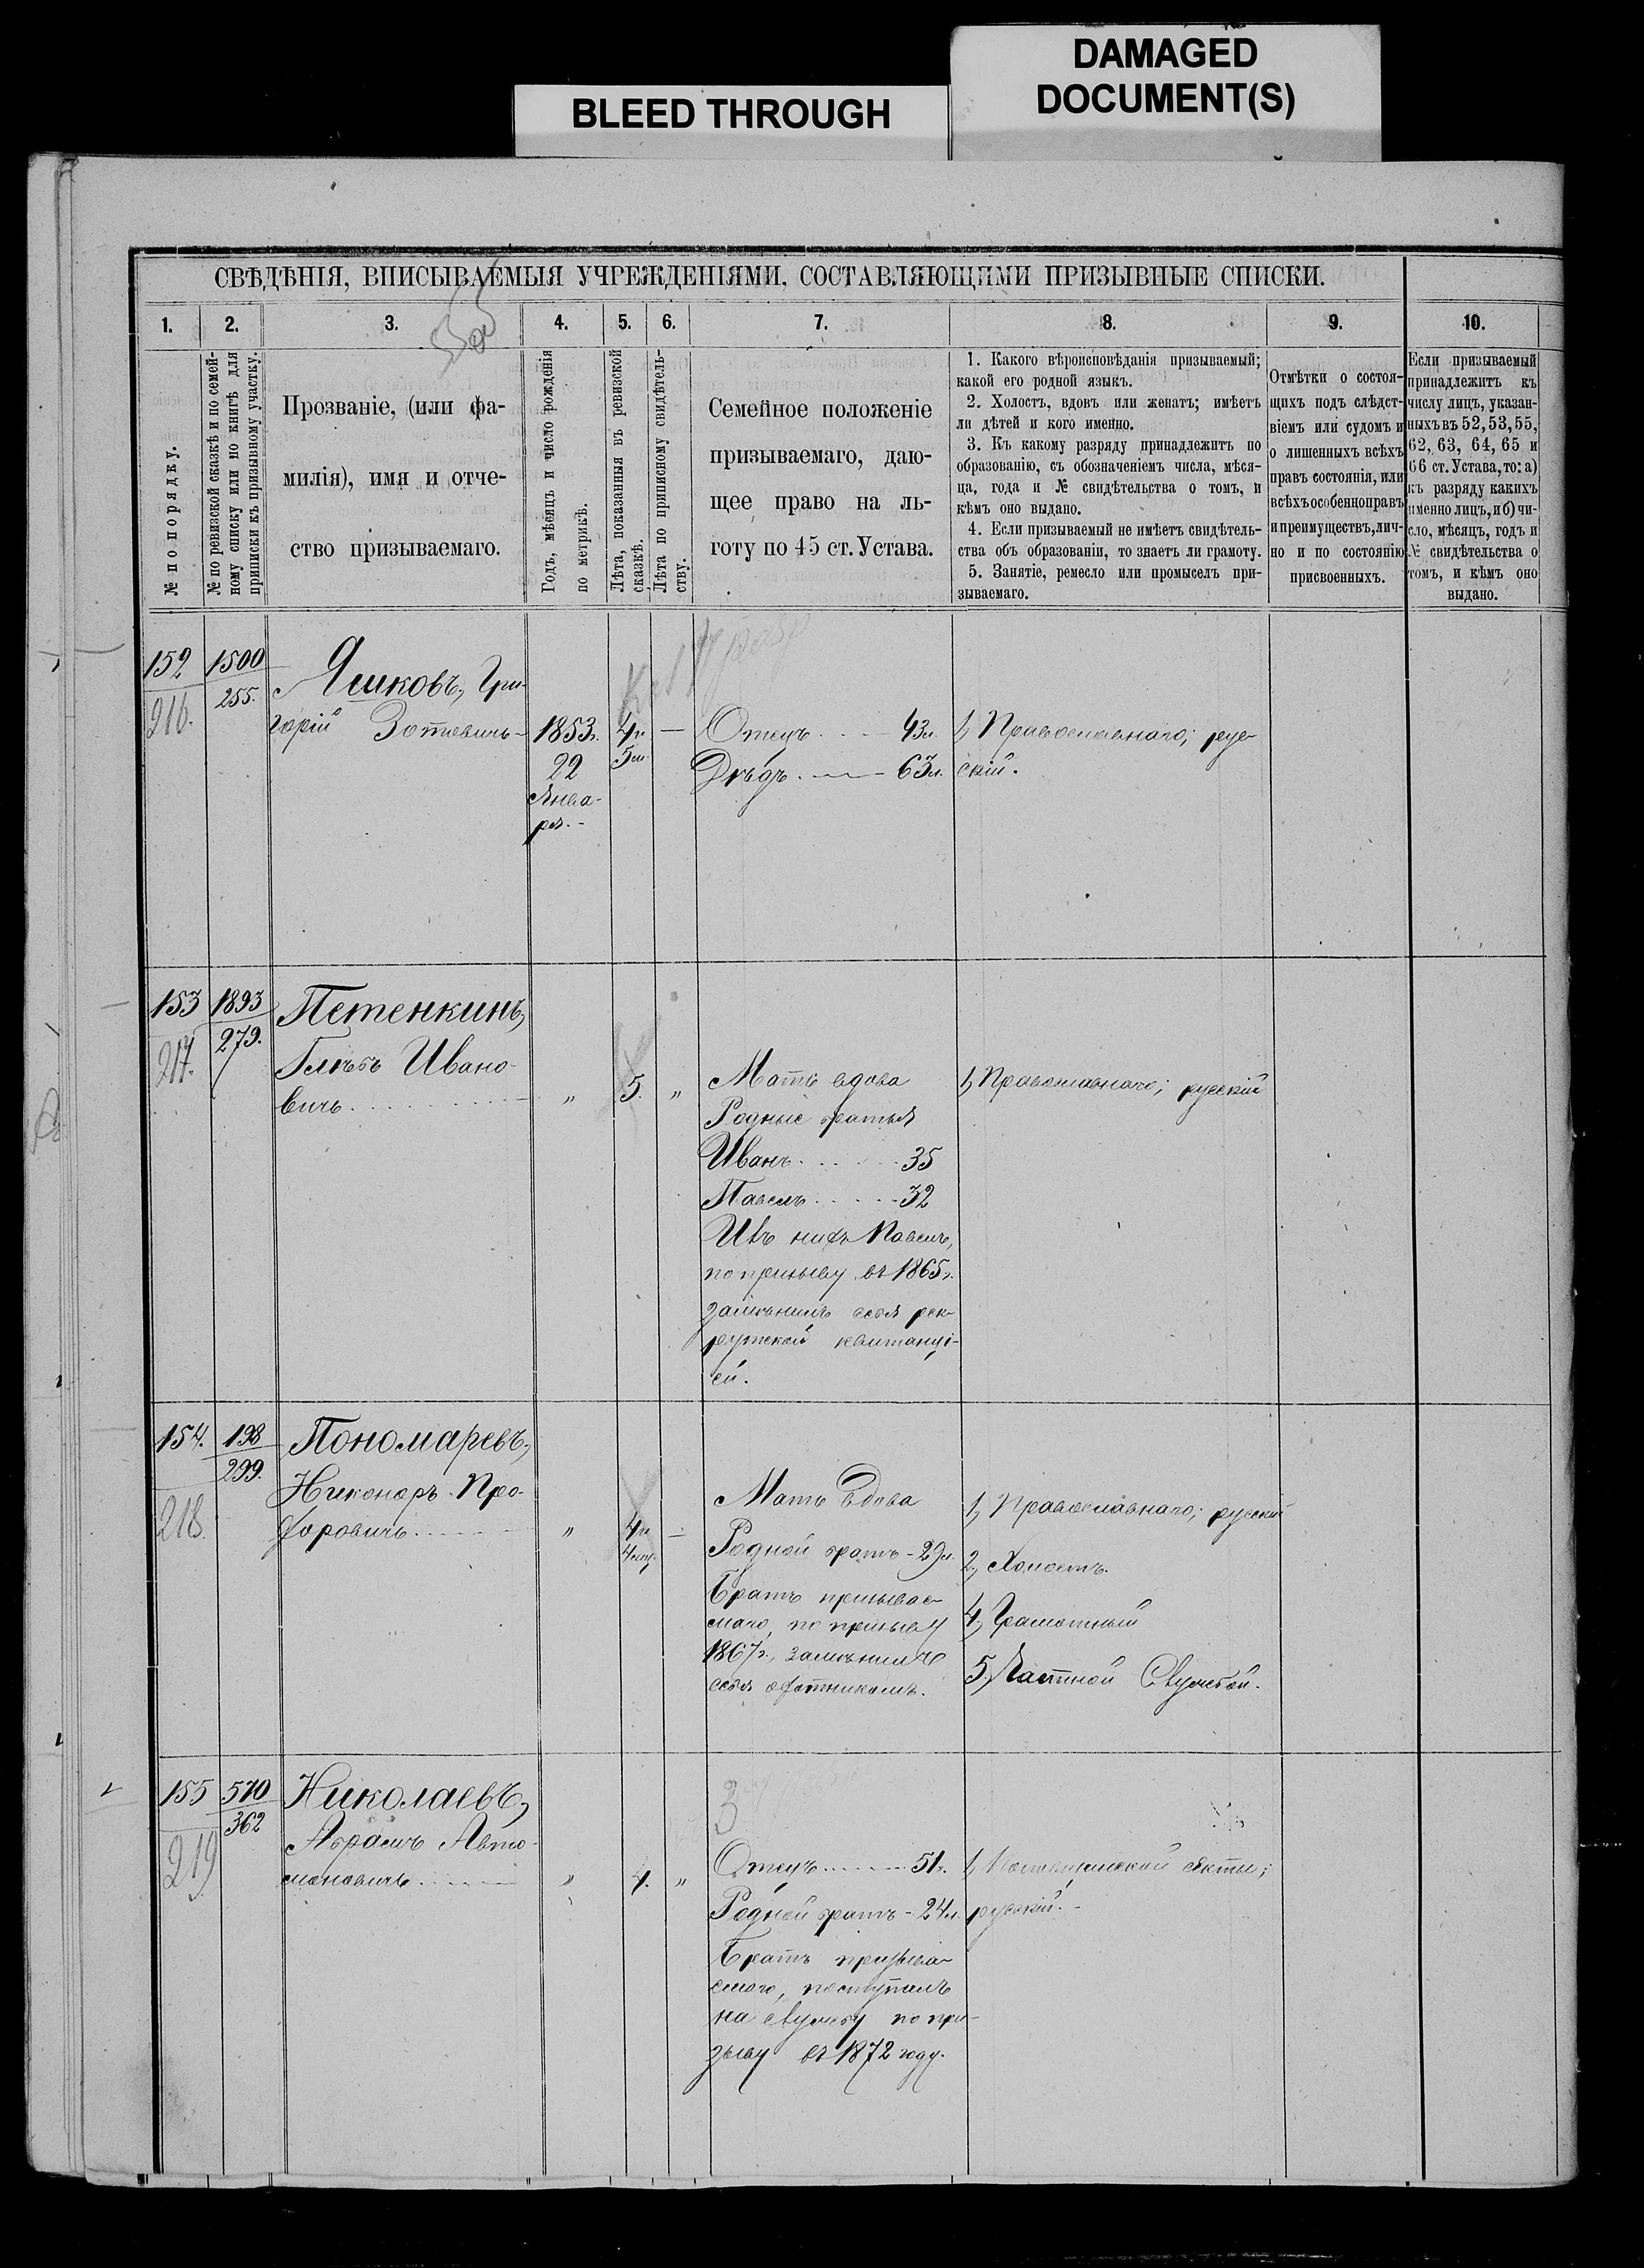 DAMAGED
DOCUMENT(S)
BLEED THROUGH
СВѢДѢНІЯ, ВПИСЫВАЕМЫЯ УЧРЕЖДЕНІЯМИ, СОСТАВЛЯЮЩИМИ ПРИЗЫВНЫЕ СПИСКИ.
1. 2. 3. 4. 5. 6. 7. 8. 9. 10.
№ по порядку.
№ по ревизской сказкѣ и по семей-
ному списку или по книгѣ для
приписки къ призывному участку.
Прозваніе, (или фа-
милія), имя и отче-
ство призываемаго.
Годъ, мѣсяцъ и число рожденія
по метрикѣ.
Лѣта, показанныя въ ревизской
сказкѣ.
Лѣта по приписному свидѣтель-
ству.
Семейное положеніе
призываемаго, даю-
щее право на ль-
готу по 45 ст. Устава.
1. Какого вѣроисповѣданія призываемый;
какой его родной языкъ.
2. Холостъ, вдовъ или женатъ; имѣетъ
ли дѣтей и кого именно.
3. Къ какому разряду принадлежитъ по
образованію, съ обозначеніемъ числа, мѣся-
ца, года и № свидѣтельства о томъ, и
кѣмъ оно выдано.
4. Если призываемый не имѣетъ свидѣтель-
ства объ образованіи, то знаетъ ли грамоту.
5. Занятіе, ремесло или промыселъ при-
зываемаго.
Отмѣтки о состоя-
щихъ подъ слѣдст-
віемъ или судомъ и
о лишенныхъ всѣхъ
правъ состоянія, или
всѣхъ особенно правъ
и преимуществъ, лич-
но и по состоянію
присвоенныхъ.
Если призываемый
принадлежитъ къ
числу лицъ, указан-
ныхъ въ 52, 53, 55,
62, 63, 64, 65 и
66 ст. Устава, то: а)
къ разряду какихъ
именно лицъ, и б) чи-
сло, мѣсяцъ, годъ и
№ свидѣтельства о
томъ, и кѣмъ оно
выдано.
152
216.
1500
255.
Яшковъ, Гри-
горій Зотовичъ-
1853г.
22
Янва-
ря.-
4г.
5м.
—
Отецъ....43л.
Дѣдъ.—63л.
1, Православнаго; рус-
скій.
153
217.
1893
279.
Петенкинъ,
Глѣбъ Ивано-
вичъ.
„
5.
„
Мать вдова
Родные братья
Иванъ......35
Павелъ.....32
Изъ нихъ Павелъ,
по призыву въ 1865г.
замѣнилъ себя рек-
рутской квитанці-
ей.
1, Православнаго; русскій
154.
218.
198
299.
Пономаревъ,
Никоноръ Про-
форовичъ.
„
4г.
4мц.
—
Мать вдова
Родной братъ-29л.
Братъ призывае-
маго, по призыву
1867г., замѣнилъ
себя охотникомъ.
1, Православнаго; русскій
2, Холостъ.
4, Грамотный
5, Частной Службой.
155
219
570
362
Николаевъ,
Абрамъ Авто-
моновичъ.
„
4.
„
3
Отецъ.......51г.
Родной братъ-24л.
Братъ призыва-
емаго, поступилъ
на службу по при-
зыву въ 1872 году.
1, секты;
русскій.-